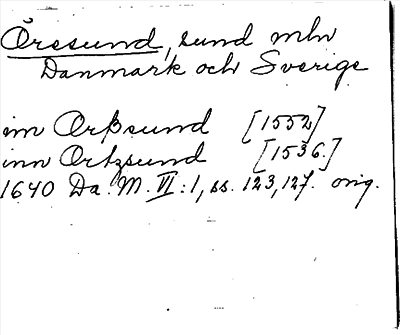 Öresund, sund mln
Danmark och Sverige
im Orßsund [1552]
inn Ortzsund [1536.]
1640 Da. M. VI:1, ss. 123, 127. orig.